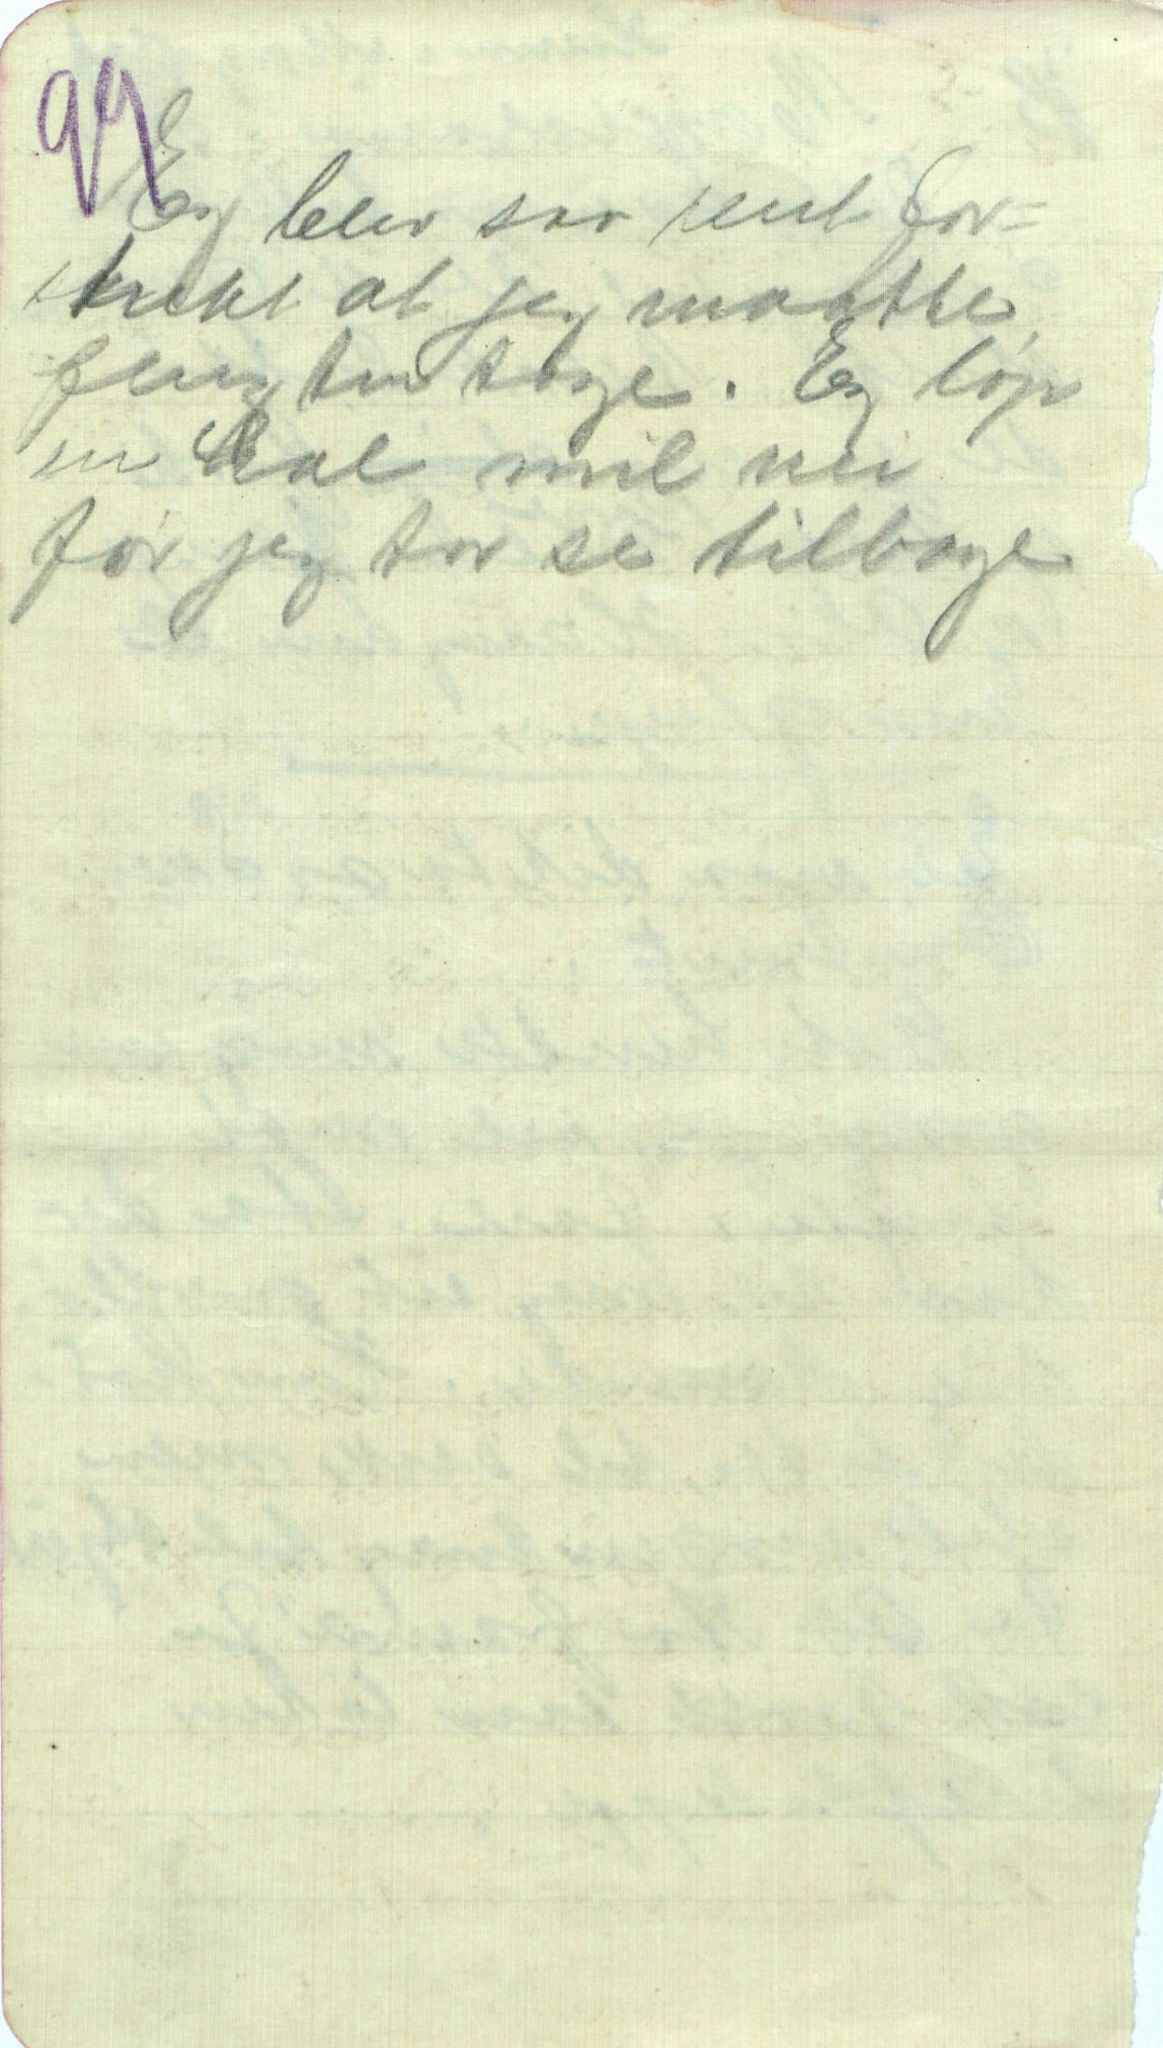 99
Eg blev saa rent for=
skrekt at jeg maatte
flugten tage. Eg løp
en hal mil nei
før jeg tor se tilbage